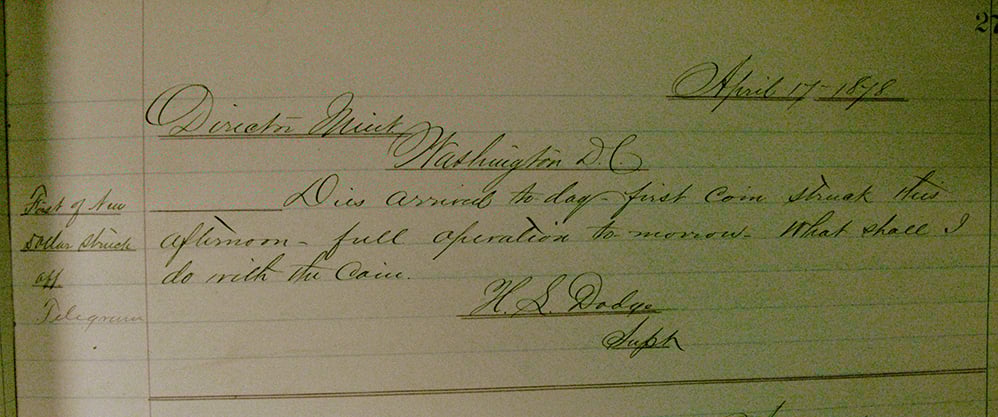 27
April 17 - 1878
Director Mint
Washington D.C.
Dies arrived to-day - first coin struck this
afternoon - full operation to-morrow. What shall I
do with the Coin.
H. L. Dodge
Supt
First of New
Dollar struck
off
Telegram